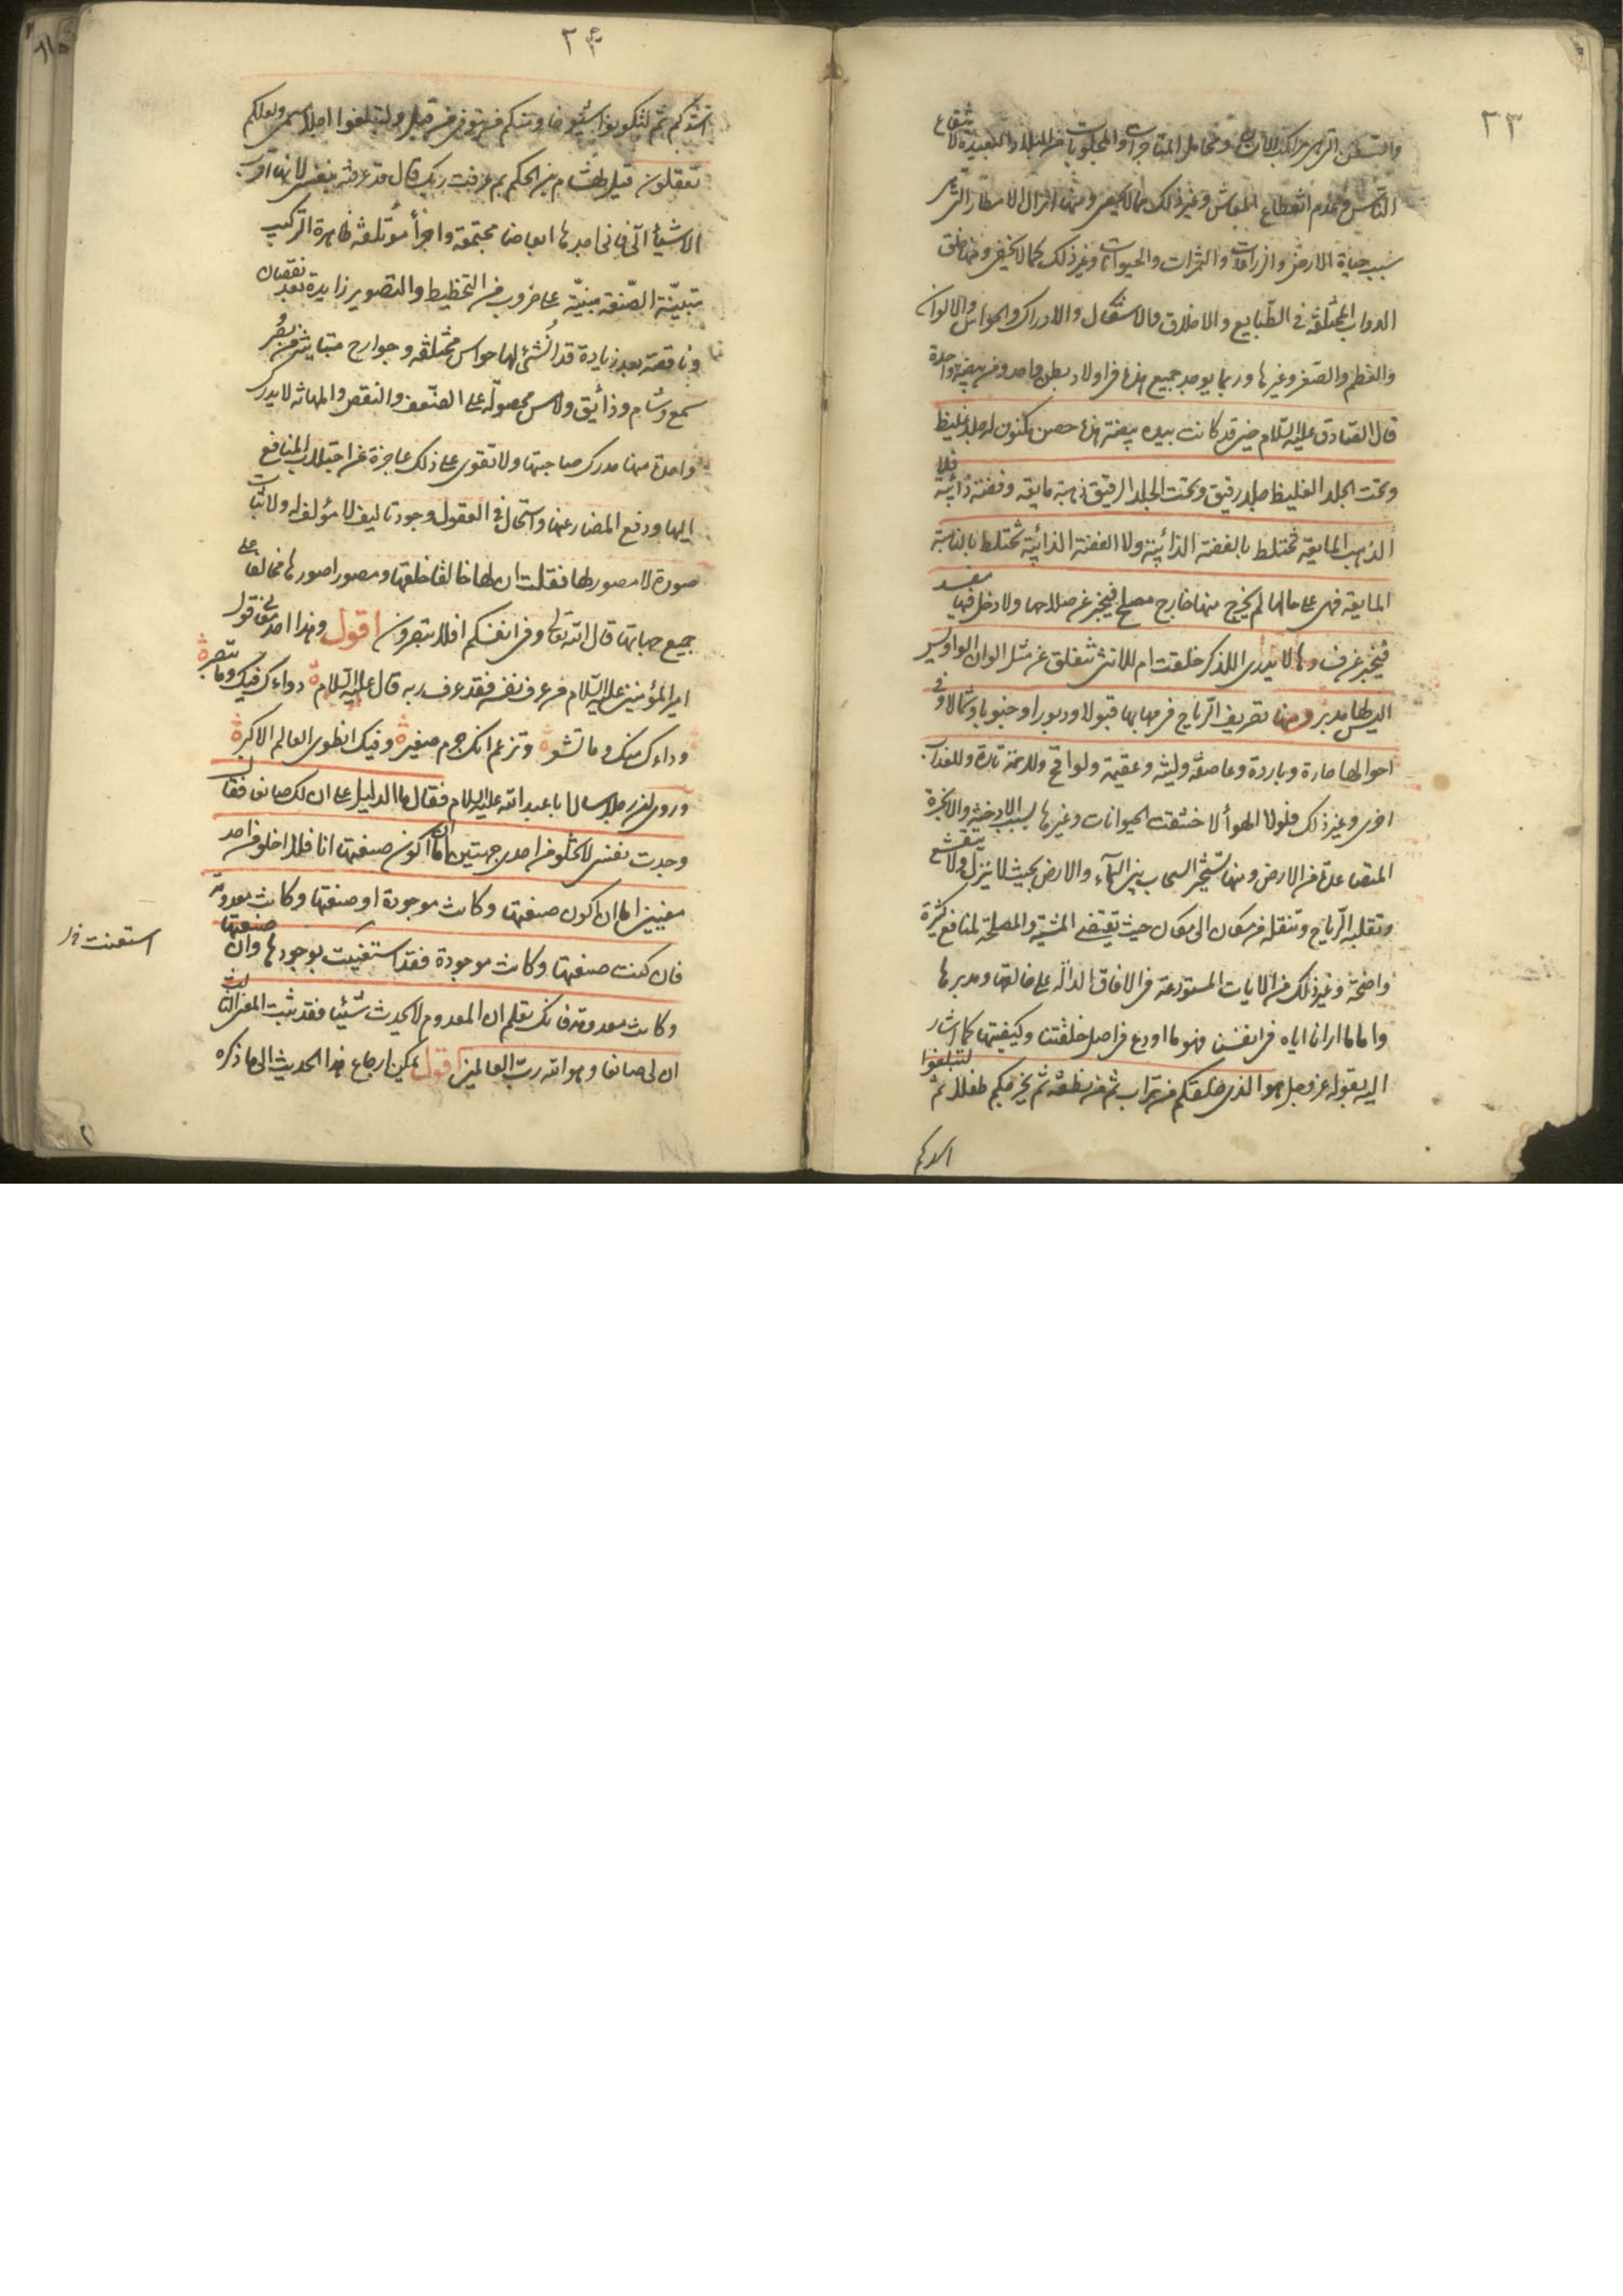 ٢٣
والسفن التى هى مراكب الانسان ومحامل المتاجرات والمجلوبات من البلاد البعيدة لانتفاع
الناس وعدم انقطاع المعاش وغير ذلك مما لا يحصى ومنها انزال الامطار التى هى
سبب حياة الارض والزراعات والثمرات والحيوانات وغير ذلك كما لا يخفى ومنها خلق
الدواب المختلفة فى الطبايع والاخلاق والاشكال والادراك والحواس والالوان
والعظم والصغر وغيرها وربما يوجد جميع هذا فى اولاد بطن واحد ومن بيضة واحدة
قال الصادق عليه السلام حين قد كانت بيده بيضة هذا حصن مكنون له جلد غليظ
وتحت الجلد الغليظ جلد رقيق وتحت الجلد الرقيق ذهبة مايعة وفضة ذائبة فلا
الذهبة المايعة تختلط بالفضة الذائبة ولا الفضة الذائبة تختلط بالذهبة
المايعة فهى على حالها لم يخرج منها خارج مصلح فيخبر عن صلاحها ولا دخل فيها مفسد
فيخبر عن فسادها لا يدرى اللذكر خلقت ام للانثى تنفلق عن مثل الوان الطواويس
اليس لها مدبر ومنها تصريف الرياح فى مهابها قبولا ودبورا وجنوبا وشمالا وفى
احوالها حارة وباردة وعاصفة ولينة وعقيمة ولواقح وللرحمة تارة وللعذاب
اخرى وغير ذلك فلولا الهواء لاختنقت الحيوانات وغيرها بسبب الادخنة والابخرة
المتصاعدة من الارض ومنها تسخير السحاب بين السماء والارض بحيث لا ينزل ولا ينقشع
وتقلبه الرياح وتنقله من مكان الى مكان حيث تقتضى المشية والمصلحة لمنافع كثيرة
واضحة وغير ذلك من الايات المستودعة فى الافاق الدالة على خالقها ومدبرها
واما ما ارانا اياه فى انفسنا فهو ما اودع فى اصل خلقتنا وكيفيتها كما اشار
اليه بقوله عز وجل هو الذى خلقكم من تراب ثم من نطفة ثم يخرجكم طفلا ثم لتبلغوا
اشدكم
٢٤
اشدكم ثم لتكونوا شيوخا ومنكم من يتوفى من قبل ولتبلغوا اجلا مسمى ولعلكم
تعقلون قيل لهشام بن الحكم بم عرفت ربك قال قد عرفته بنفسى لانها اقرب
الاشياء الى فانى اجدها ابعاضا مجتمعة واجزاء مؤتلفة ظاهرة التركيب
متبينة الصنعة مبنية على ضروب من التخطيط والتصوير زايدة بعد نقصان
وناقصة بعد زيادة قد انشئ لها حواس مختلفة وجوارح متباينة من بصر و
سمع وشام وذائق ولامس مجبولة على الضعف والنقص والمهانة لا يدرك
واحدة منها مدرك صاحبتها ولا تقوى على ذلك عاجزة عن اجتلاب المنافع
اليها ودفع المضار عنها واستحال فى العقول وجود تاليف لا مؤلف له ولا ثبات
صورة لا مصور لها فعلمت ان لها خالقا خلقها ومصورا صورها مخالفا على
جميع جهاتها قال الله تعالى وفى انفسكم افلا تبصرون اقول وهذا احد معانى قول
امير المؤمنين عليه السلام من عرف نفسه فقد عرف ربه قال عليه السلام دواءك فيك وما تبصر
وداءك منك وما تشعر وتزعم انك جرم صغير وفيك انطوى العالم الاكبر
وروى ان رجلا سال ابا عبد الله عليه السلام فقال ما الدليل على ان لك صانعا فقال
وجدت نفسى لا تخلو من احدى جهتين اما ان اكون صنعتها انا فلا اخلو من احد
معنيين اما ان اكون صنعتها وكانت موجودة او صنعتها وكانت معدومة
فان كنت صنعتها وكانت موجودة فقد استغنيت بوجودها وان صنعتها
وكانت معدومة فانك تعلم ان المعدوم لا يحدث شيئا فقد ثبت المعنى الثالث
ان لى صانعا وهو الله رب العالمين اقول يمكن ارجاع هذا الحديث الى ما ذكره